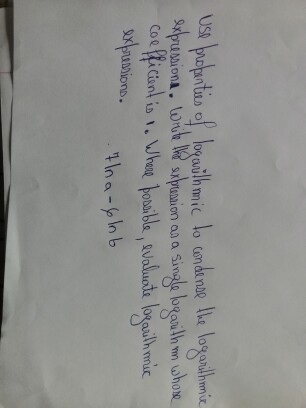 Use properties of logarithmic to condense the logarithmic
expression. Write the expression as a single logarithm whose
coefficient is 1. Where possible, evaluate logarithmic
expressions.
7 ln a - 6 ln b